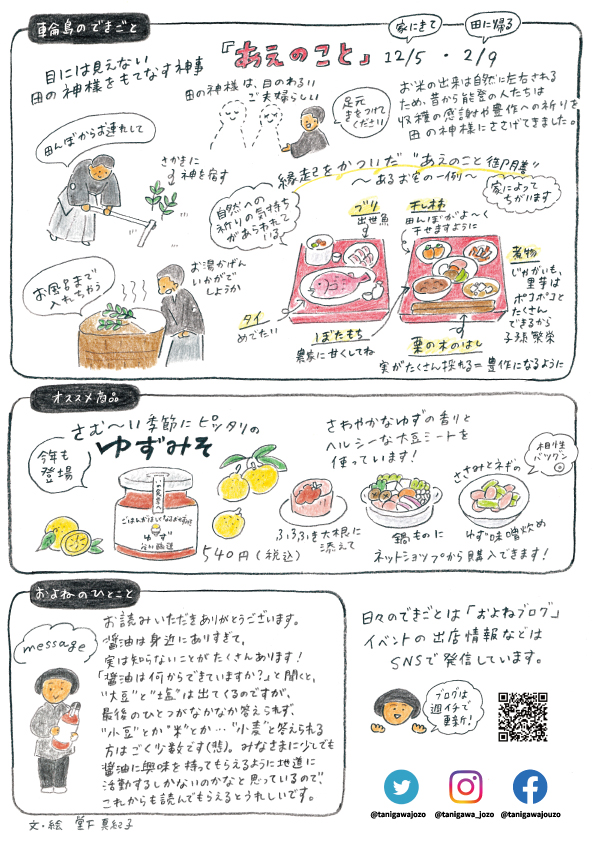 輪島のできごと
「あえのこと」 12/5 ・ 2/9
家にきて
田に帰る
目には見えない
田の神様をもてなす神事
田の神様は、目のわるい
ご夫婦らしい
足元
きをつけて
ください
お米の出来は自然に左右される
ため、昔から能登の人たちは
収穫の感謝や豊作への祈りを
田の神様にささげてきました。
田んぼからお連れして
さかきに
神を宿す
縁起をかついだ "あえのこと御膳"
〜あるお宅の一例〜
家によって
ちがいます
自然への
祈りの気持ち
があらわれて
いる
お風呂まで
入れちゃう
お湯かげん
いかがで
しょうか
ブリ
出世魚
干し柿
田んぼがよ〜く
干せますように
煮物
じゃがいも、
里芋は
ポコポコと
たくさん
できるから
子孫繁栄
タイ
めでたい
ぼたもち
農家に甘くしてね
栗の木のはし
実がたくさん採れる=豊作になるように
オススメ商品
さむ〜い季節にピッタリの
ゆずみそ
今年も
登場
ごはんがほしくなるおかず味噌
ゆず
谷川醸造
540円(税込)
さわやかなゆずの香りと
ヘルシーな大豆ミートを
使っています!
相性
バツグン
ささみとネギの
ゆず味噌炒め
ふろふき大根に
添えて
鍋ものに
ネットショップから購入できます!
およねのひとこと
message
お読みいただきありがとうございます。
醤油は身近にありすぎて、
実は知らないことがたくさんあります!
「醤油は何からできていますか?」と聞くと、
"大豆"と"塩"は出てくるのですが、
最後のひとつがなかなか答えられず、
"小豆"とか"米"とか…"小麦"と答えられる
方はごく少数です(驚)。みなさまに少しでも
醤油に興味を持ってもらえるように地道に
活動するしかないのかなと思っているので、
これからも読んでもらえるとうれしいです。
文・絵 堂下真紀子
日々のできごとは「およねブログ」
イベントの出店情報などは
SNSで発信しています。
ブログは
週イチで
更新!
@tanigawajozo
@tanigawa_jozo
@tanigawajouzo